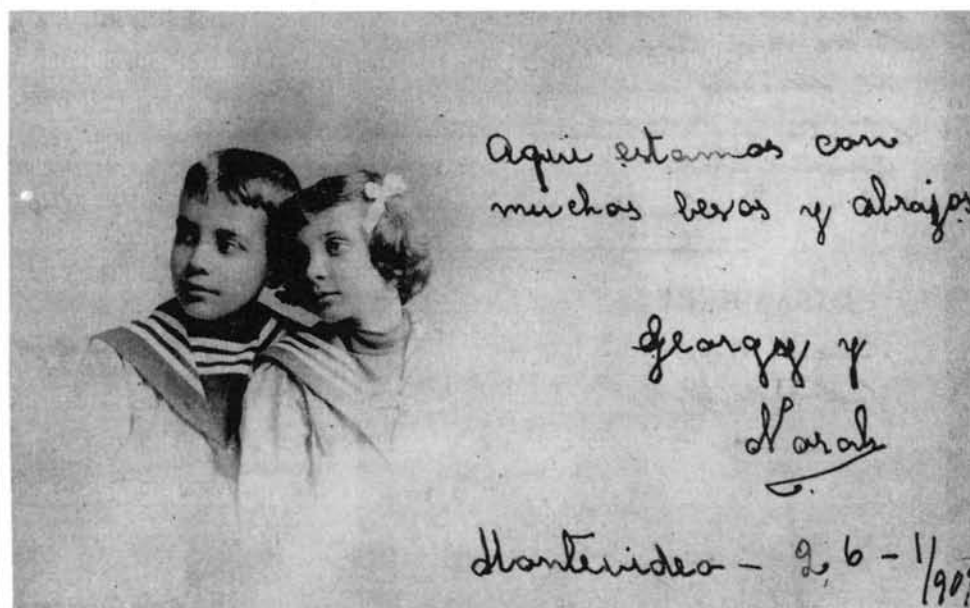 Aqui estamos con
muchos besos y abrazos
Georgy y
Norah
Montevideo - 26 - 1/